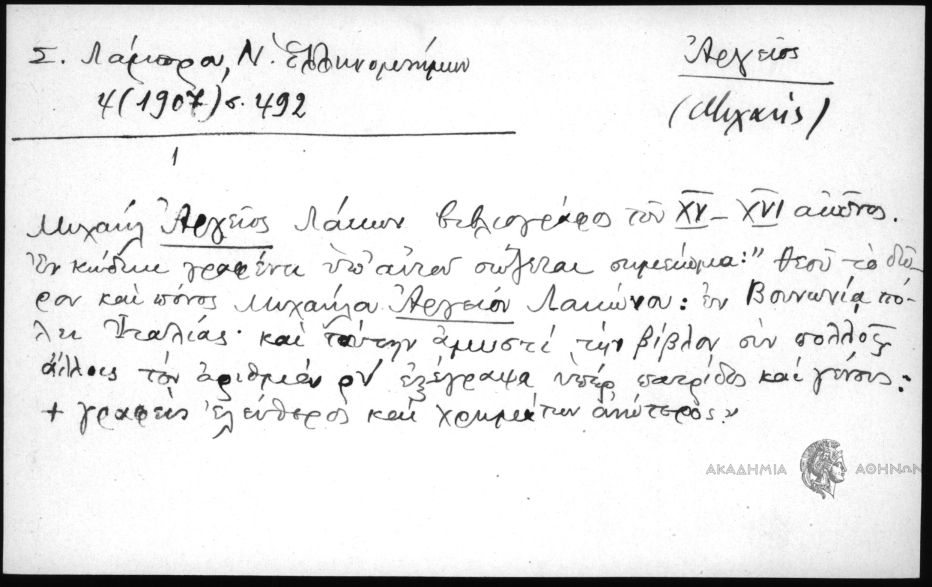 Σ. Λάμπρου, Ν. Ἑλληνομνήμων
4 (1907) σ. 492
Ἀργεῖος
(Μιχαήλ)
1
Μιχαήλ Ἀργεῖος Λάκων βιβλιογράφος τοῦ XV–XVI αἰῶνος.
Ἐν κώδικι γραφέντι ὑπ' αὐτοῦ σώζεται σημείωμα: " Θεοῦ τὸ δῶ-
ρον καὶ πόνος Μιχαήλα Ἀργείου Λακώνου: ἐν Βονωνίᾳ πό-
λει Ἰταλίας· καὶ ταύτην ἀμισθί τὴν βίβλον σὺν πολλοῖς
ἄλλοις τὸν ἀριθμόν ρν' ἐξέγραψα ὑπέρ πατρίδος καὶ γένους:
+ γραφεὺς ἐλεύθερος καὶ χρημάτων ἀνώτερος"
ΑΚΑΔΗΜΙΑ ΑΘΗΝΩΝ